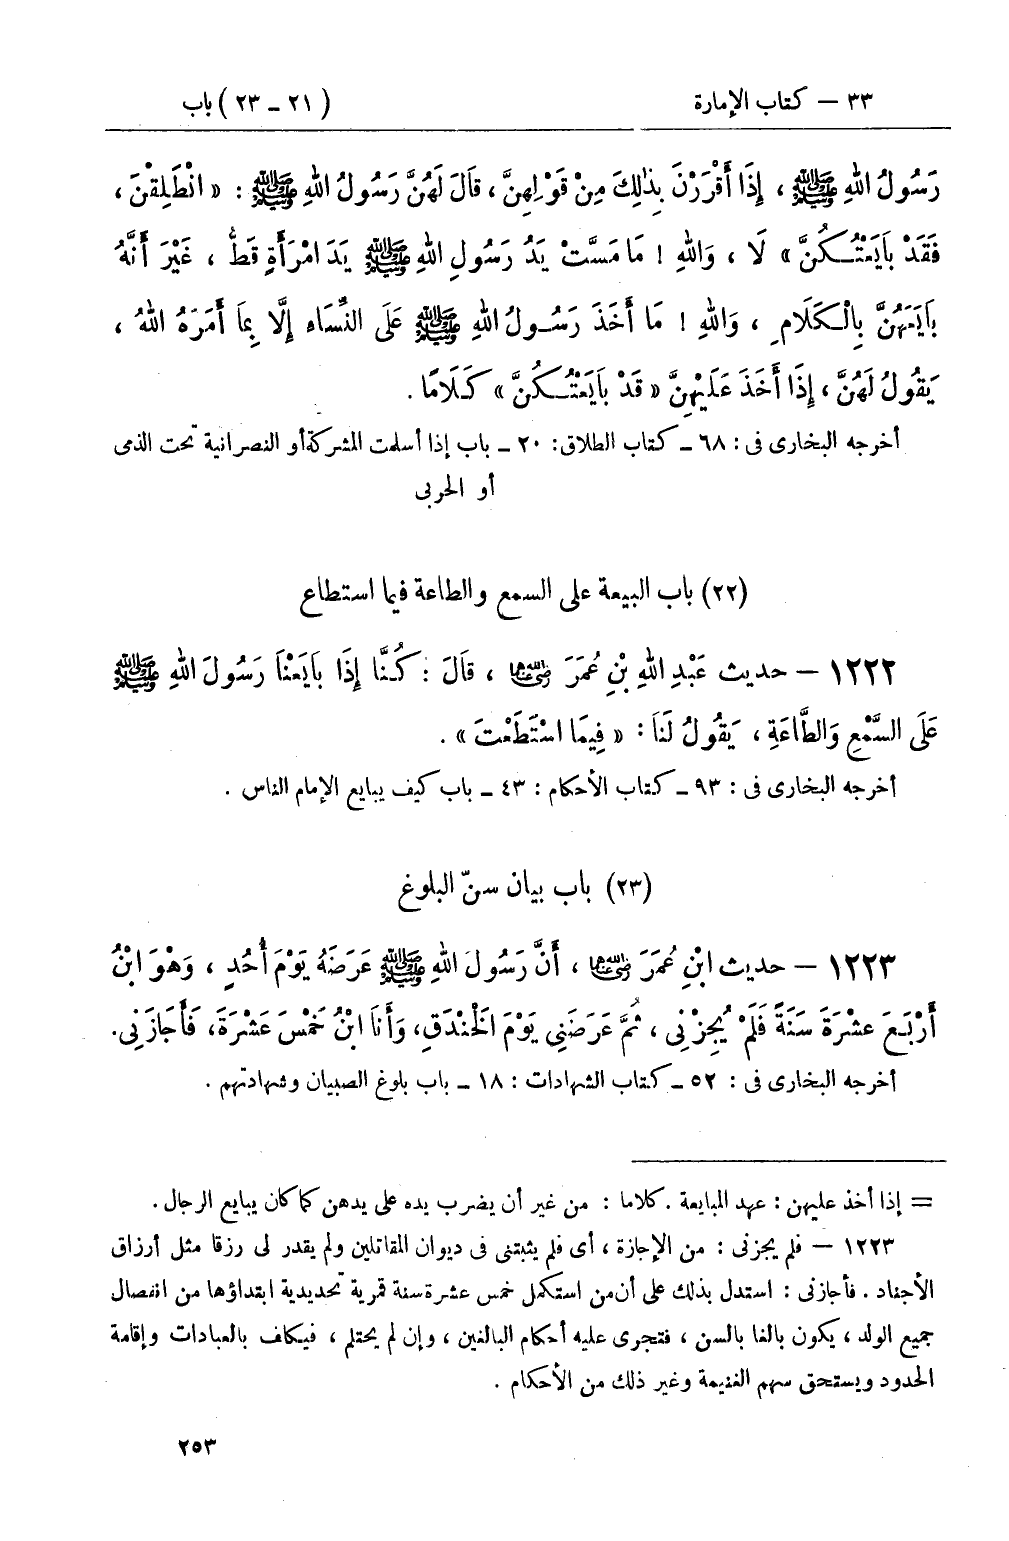 ٣٣ — كتاب الإمارة
( ٢١ - ٢٣ ) باب
رَسُولُ اللهِ ﷺ ، إِذَا أَقْرَرْنَ بِذٰلِكَ مِنْ قَوْلِهِنَّ ، قَالَ لَهُنَّ رَسُولُ اللهِ ﷺ : « انْطَلِقْنَ ،
فَقَدْ بَايَعْتُـكُنَّ » لَا ، وَاللهِ ! مَا مَسَّتْ يَدُ رَسُولِ اللهِ ﷺ يَدَ امْرَأَةٍ قَطُّ ، غَيْرَ أَنَّهُ
بَايَعَهُنَّ بِالْـكَلَامِ ، وَاللهِ ! مَا أَخَذَ رَسُولُ اللهِ ﷺ عَلَى النِّسَاءِ إِلَّا بِمَا أَمَرَهُ اللهُ ،
يَقُولُ لَهُنَّ ، إِذَا أَخَذَ عَلَيْهِنَّ « قَدْ بَايَعْتُـكُنَّ » كَلَامًا .
أخرجه البخارى فى : ٦٨ ــ كتاب الطلاق : ٢٠ ــ باب إذا أسلمت المشركة أو النصرانية تحت الذمى
أو الحربى
(٢٢) باب البيعة على السمع والطاعة فيما استطاع
١٢٢٢ — حديث عَبْدِ اللهِ بْنِ عُمَرَ رضي الله عنهما ، قَالَ : كُنَّا إِذَا بَايَعْنَا رَسُولَ اللهِ ﷺ
عَلَى السَّمْعِ وَالطَّاعَةِ ، يَقُولُ لَنَا : « فِيمَا اسْتَطَعْتَ » .
أخرجه البخارى فى : ٩٣ ــ كتاب الأحكام : ٤٣ ــ باب كيف يبايع الإمام الناس .
(٢٣) باب بيان سنّ البلوغ
١٢٢٣ — حديث ابْنِ عُمَرَ رضي الله عنهما ، أَنَّ رَسُولَ اللهِ ﷺ عَرَضَهُ يَوْمَ أُحُدٍ ، وَهْوَ ابْنُ
أَرْبَعَ عَشْرَةَ سَنَةً فَلَمْ يُجِزْنِى ، ثُمَّ عَرَضَنِى يَوْمَ الْخَنْدَقِ، وَأَنَا ابْنُ خَمْسَ عَشْرَةَ، فَأَجَازَنِى.
أخرجه البخارى فى : ٥٢ ــ كتاب الشهادات : ١٨ ــ باب بلوغ الصبيان وشهادتهم .
= إذا أخذ عليهن : عهد المبايعة . كلاما : من غير أن يضرب يده على يدهن كما كان يبايع الرجال .
١٢٢٣ — فلم يجزنى : من الإجازة ، أى فلم يثبتنى فى ديوان المقاتلين ولم يقدر لى رزقا مثل أرزاق
الأجناد . فأجازنى : استدل بذلك على أن من استكمل خمس عشرة سنة قمرية تحديدية ابتداؤها من انفصال
جميع الولد ، يكون بالغا بالسن ، فتجرى عليه أحكام البالغين ، وإن لم يحتلم ، فيكلف بالعبادات وإقامة
الحدود ويستحق سهم الغنيمة وغير ذلك من الأحكام .
٢٥٣